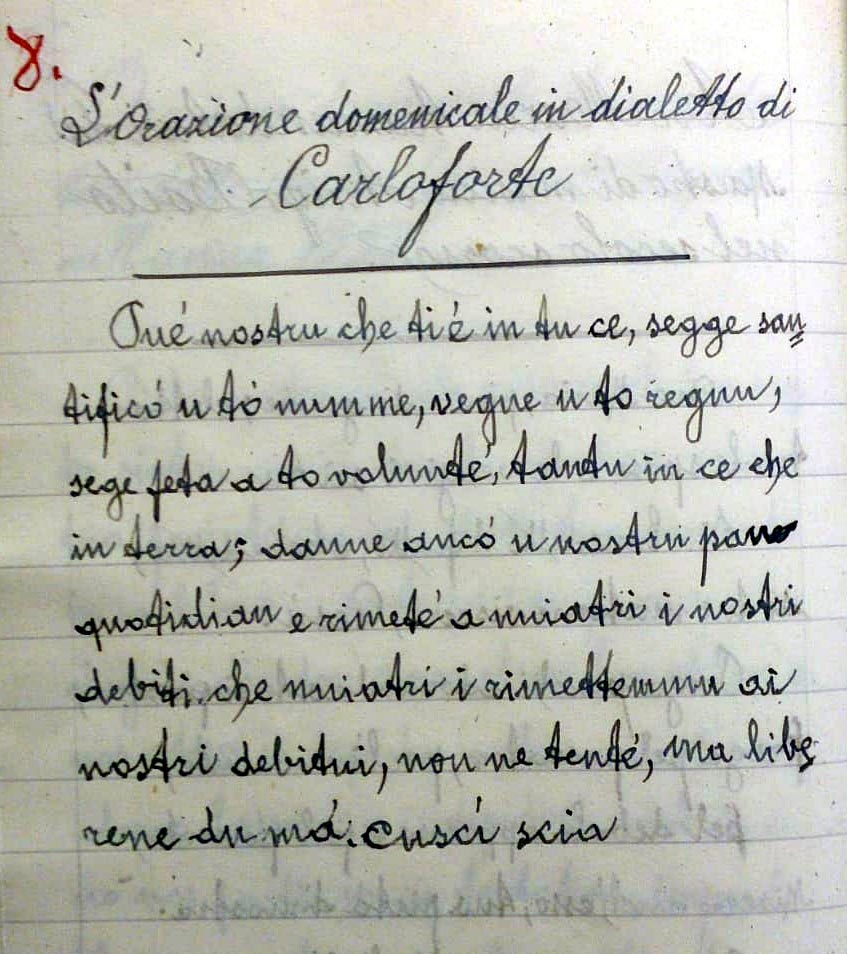 8.
L'Orazione domenicale in dialetto di
Carloforte
Pué nostru che ti é in tu ce, segge san
tificó u tó numme, vegne u to regnu,
sege feta a to volunté, tantu in ce che
in terra; danne ancó u nostru pan
quotidian e rimeté a nuiatri i nostri
debiti. che nuiatri i rimettemmu ai
nostri debitui, non ne tenté, ma libe
rene du má. cuscí scia